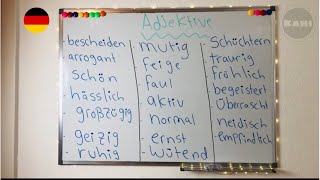 Adjektive
KAHI
bescheiden
arrogant
schön
hässlich
großzügig
geizig
- ruhig
mutig
feige
faul
aktiv
normal
- ernst
- wütend
Schüchtern
traurig
fröhlich
begeistert
überrascht
neidisch
- empfindlich